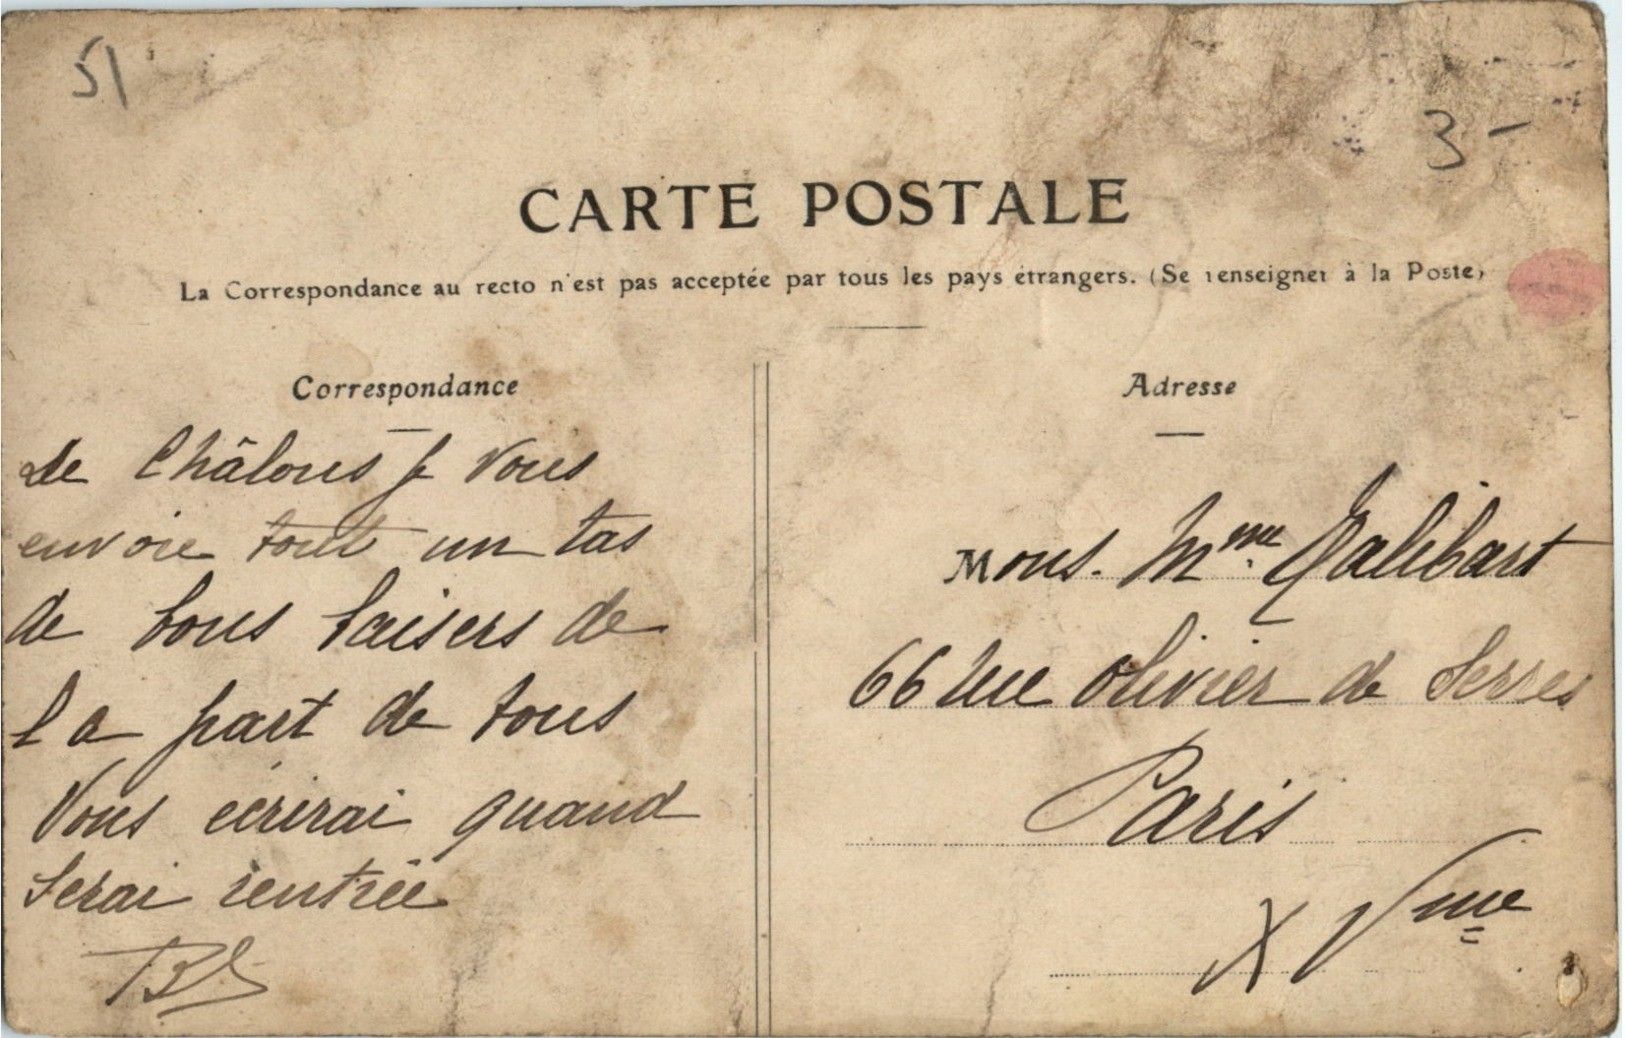 51
3 -
CARTE POSTALE
La Correspondance au recto n'est pas acceptée par tous les pays étrangers. (Se renseigner à la Poste)
Correspondance
De Châlons je vous
envoie tout un tas
de bons baisers de
la part de tous
Vous écrirai quand
serai rentrée
Adresse
Mons. Mme Galibart
66 rue Olivier de Serres
Paris
XVme